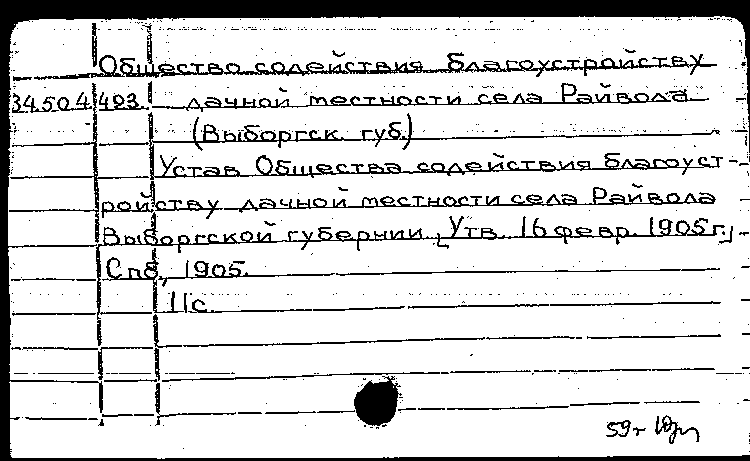 Общество содействия благоустройству
34.504 493. дачной местности села Райвола
(Выборгск. губ.)
Устав Общества содействия благоуст-
ройству дачной местности села Райвола
Выборгской губернии. [Утв. 16 февр. 1905 г.] -
Спб., 1905.
11 с.
59г